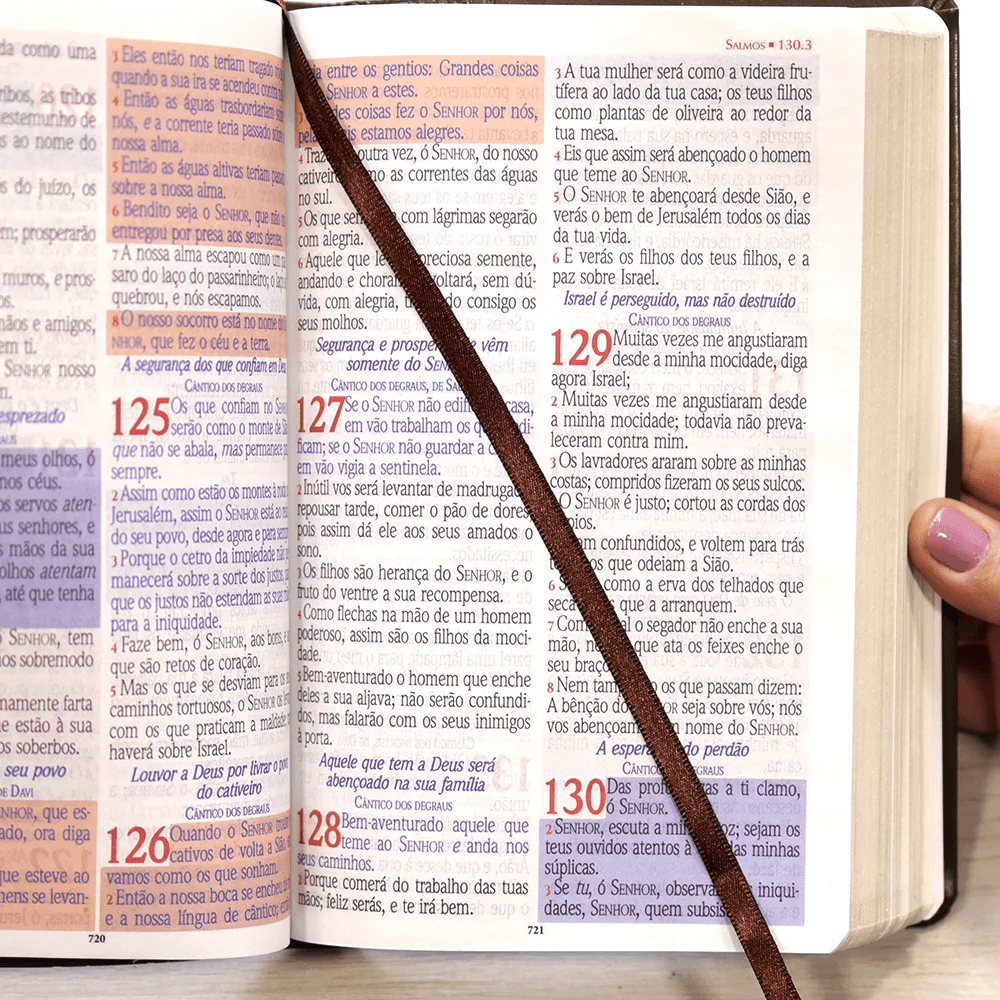 da como uma
ribos, as tribos
testemunho de
as ao nome do
os do juízo, os
em; prosperarão
muros, e pros-
os.
mãos e amigos,
em ti.
SENHOR nosso
esprezado
AUS
meus olhos, ó
nos céus.
os servos aten-
us senhores, e
s mãos da sua
olhos atentam
, até que tenha
ó SENHOR, tem
nos sobremodo
mamente farta
e estão à sua
os soberbos.
seu povo
DE DAVI
NHOR, que es-
ado, ora diga
que esteve ao
mens se levan-
3 Eles então nos teriam tragado
quando a sua ira se acendeu contra
4 Então as águas trasbordariam
nós, e a corrente teria passado
nossa alma.
5 Então as águas altivas teriam
sobre a nossa alma.
6 Bendito seja o SENHOR, que não
entregou por presa aos seus dentes.
7 A nossa alma escapou como um
saro do laço do passarinheiro; o laço
quebrou, e nós escapamos.
8 O nosso socorro está no nome do
NHOR, que fez o céu e a terra.
A segurança dos que confiam em Deus
CÂNTICO DOS DEGRAUS
125 Os que confiam no
serão como o monte de
que não se abala, mas permanece
sempre.
2 Assim como estão os montes à
Jerusalém, assim o SENHOR está ao
do seu povo, desde agora e para
3 Porque o cetro da impiedade
manecerá sobre a sorte dos justos,
que os justos não estendam as suas
para a iniquidade.
4 Faze bem, ó SENHOR, aos bons e
que são retos de coração.
5 Mas os que se desviam para os
caminhos tortuosos, o SENHOR os
com os que praticam a maldade
haverá sobre Israel.
Louvor a Deus por livrar o povo
do cativeiro
CÂNTICO DOS DEGRAUS
126 Quando o SENHOR
cativos de volta a
vamos como os que sonham.
2 Então a nossa boca se encheu de
e a nossa língua de cântico;
720
SALMOS ▪ 130.3
entre os gentios: Grandes coisas
SENHOR a estes.
coisas fez o SENHOR por nós,
estamos alegres.
4 outra vez, ó SENHOR, do nosso
as correntes das águas
no sul.
5 Os que com lágrimas segarão
com alegria.
6 Aquele que preciosa semente,
andando e voltará, sem dú-
vida, com alegria, consigo os
seus molhos.
Segurança e vêm
somente do
CÂNTICO DOS DEGRAUS, DE
127 Se o SENHOR não casa,
em vão trabalham os que
ficam; se o SENHOR não guardar a
em vão vigia a sentinela.
2 Inútil vos será levantar de
repousar tarde, comer o pão de dores,
pois assim dá ele aos seus amados o
sono.
3 Os filhos são herança do SENHOR, e o
fruto do ventre a sua recompensa.
4 Como flechas na mão de um homem
poderoso, assim são os filhos da moci-
dade.
5 Bem-aventurado o homem que enche
deles a sua aljava; não serão confundi-
dos, mas falarão com os seus inimigos
à porta.
Aquele que tem a Deus será
abençoado na sua família
CÂNTICO DOS DEGRAUS
128 Bem-aventurado aquele que
teme ao SENHOR e anda nos
seus caminhos.
2 Porque comerá do trabalho das tuas
mãos; feliz serás, e te irá bem.
3 A tua mulher será como a videira fru-
tífera ao lado da tua casa; os teus filhos
como plantas de oliveira ao redor da
tua mesa.
4 Eis que assim será abençoado o homem
que teme ao SENHOR.
5 O SENHOR te abençoará desde Sião, e
verás o bem de Jerusalém todos os dias
da tua vida.
6 E verás os filhos dos teus filhos, e a
paz sobre Israel.
Israel é perseguido, mas não destruído
CÂNTICO DOS DEGRAUS
129 Muitas vezes me angustiaram
desde a minha mocidade, diga
agora Israel;
2 Muitas vezes me angustiaram desde
a minha mocidade; todavia não preva-
leceram contra mim.
3 Os lavradores araram sobre as minhas
costas; compridos fizeram os seus sulcos.
O SENHOR é justo; cortou as cordas dos
pios.
confundidos, e voltem para trás
os que odeiam a Sião.
6 como a erva dos telhados que
seca que a arranquem.
7 o segador não enche a sua
mão, que ata os feixes enche o
seu braço
8 Nem os que passam dizem:
A bênção do seja sobre vós; nós
vos abençoamos nome do SENHOR.
A perdão
CÂNTICO DOS DEGRAUS
130 Das a ti clamo,
ó SENHOR.
2 SENHOR, escuta a voz; sejam os
teus ouvidos atentos à das minhas
súplicas.
3 Se tu, ó SENHOR, iniqui-
dades, SENHOR, quem
721